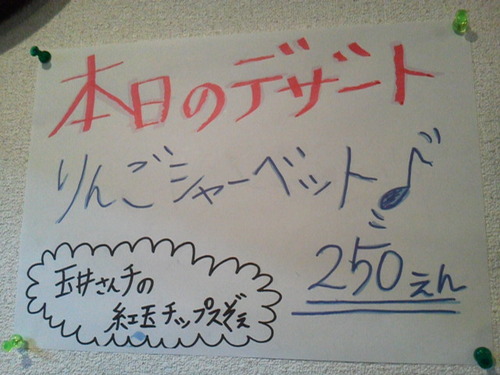 本日のデザート
りんごシャーベット♪
250えん
玉井さんチの
紅玉チップスぞえ